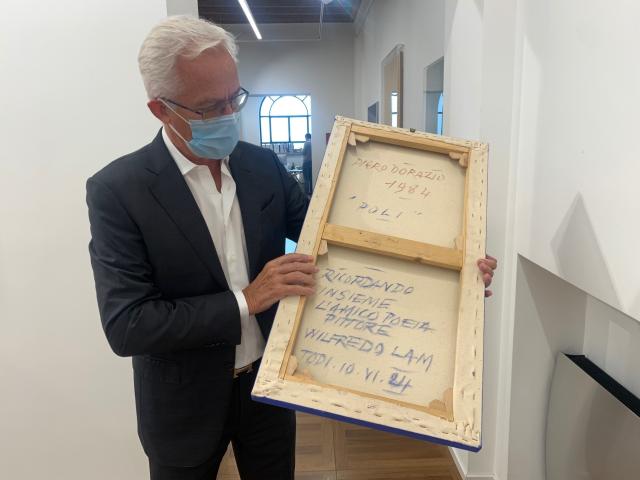 PIERO DORAZIO
1984
"POLI"
RICORDANDO
INSIEME
L'AMICO POETA
PITTORE
WILFREDO LAM
TODI. 10. VI. 84